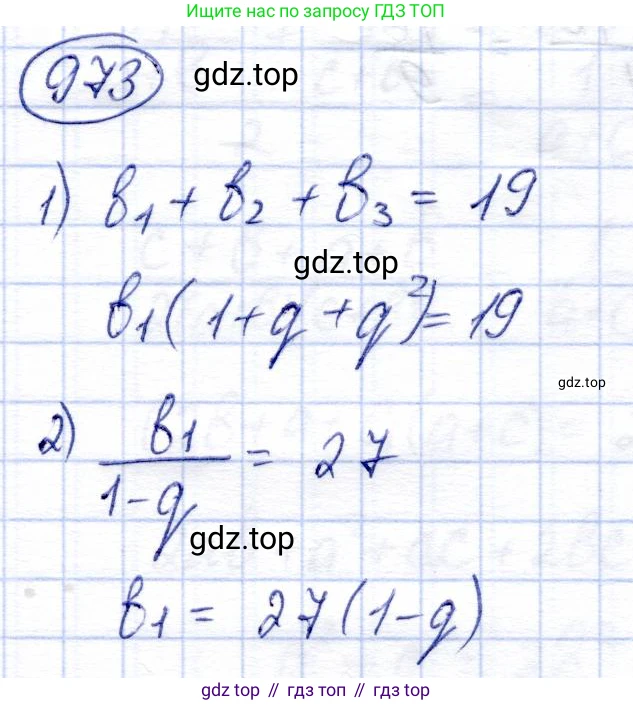 Ищите нас по запросу ГДЗ ТОП
973
gdz.top
1) b₁ + b₂ + b₃ = 19
gdz.top
b₁(1+q+q²)=19
gdz.top
2) b₁/(1-q) = 27
gdz.top
b₁ = 27(1-q)
gdz top // гдз топ // gdz.top